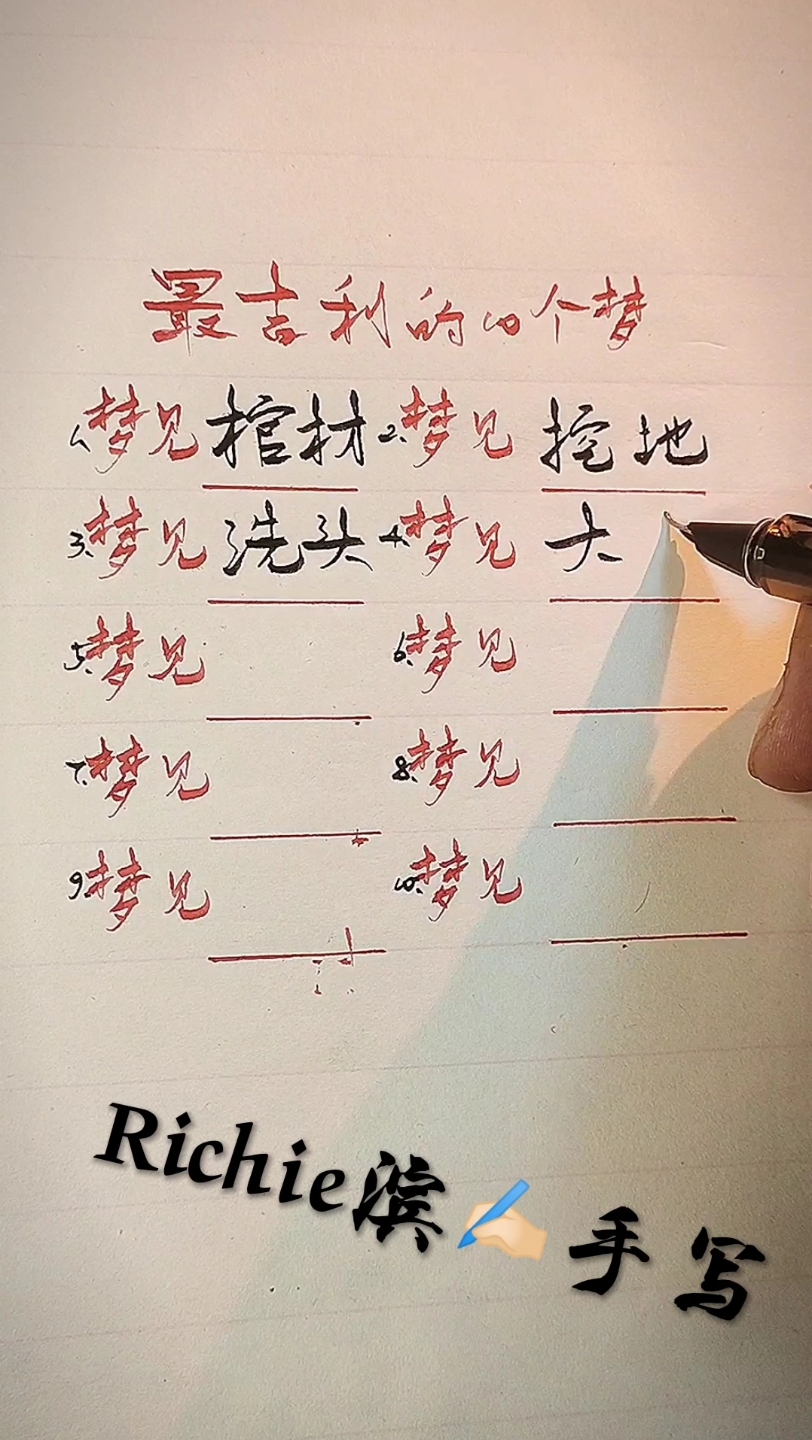 最吉利的10个梦
1、梦见棺材 2、梦见挖地
3、梦见洗头 4、梦见大
5、梦见 6、梦见
7、梦见 8、梦见
9、梦见 10、梦见
Richie滨✍🏻手写